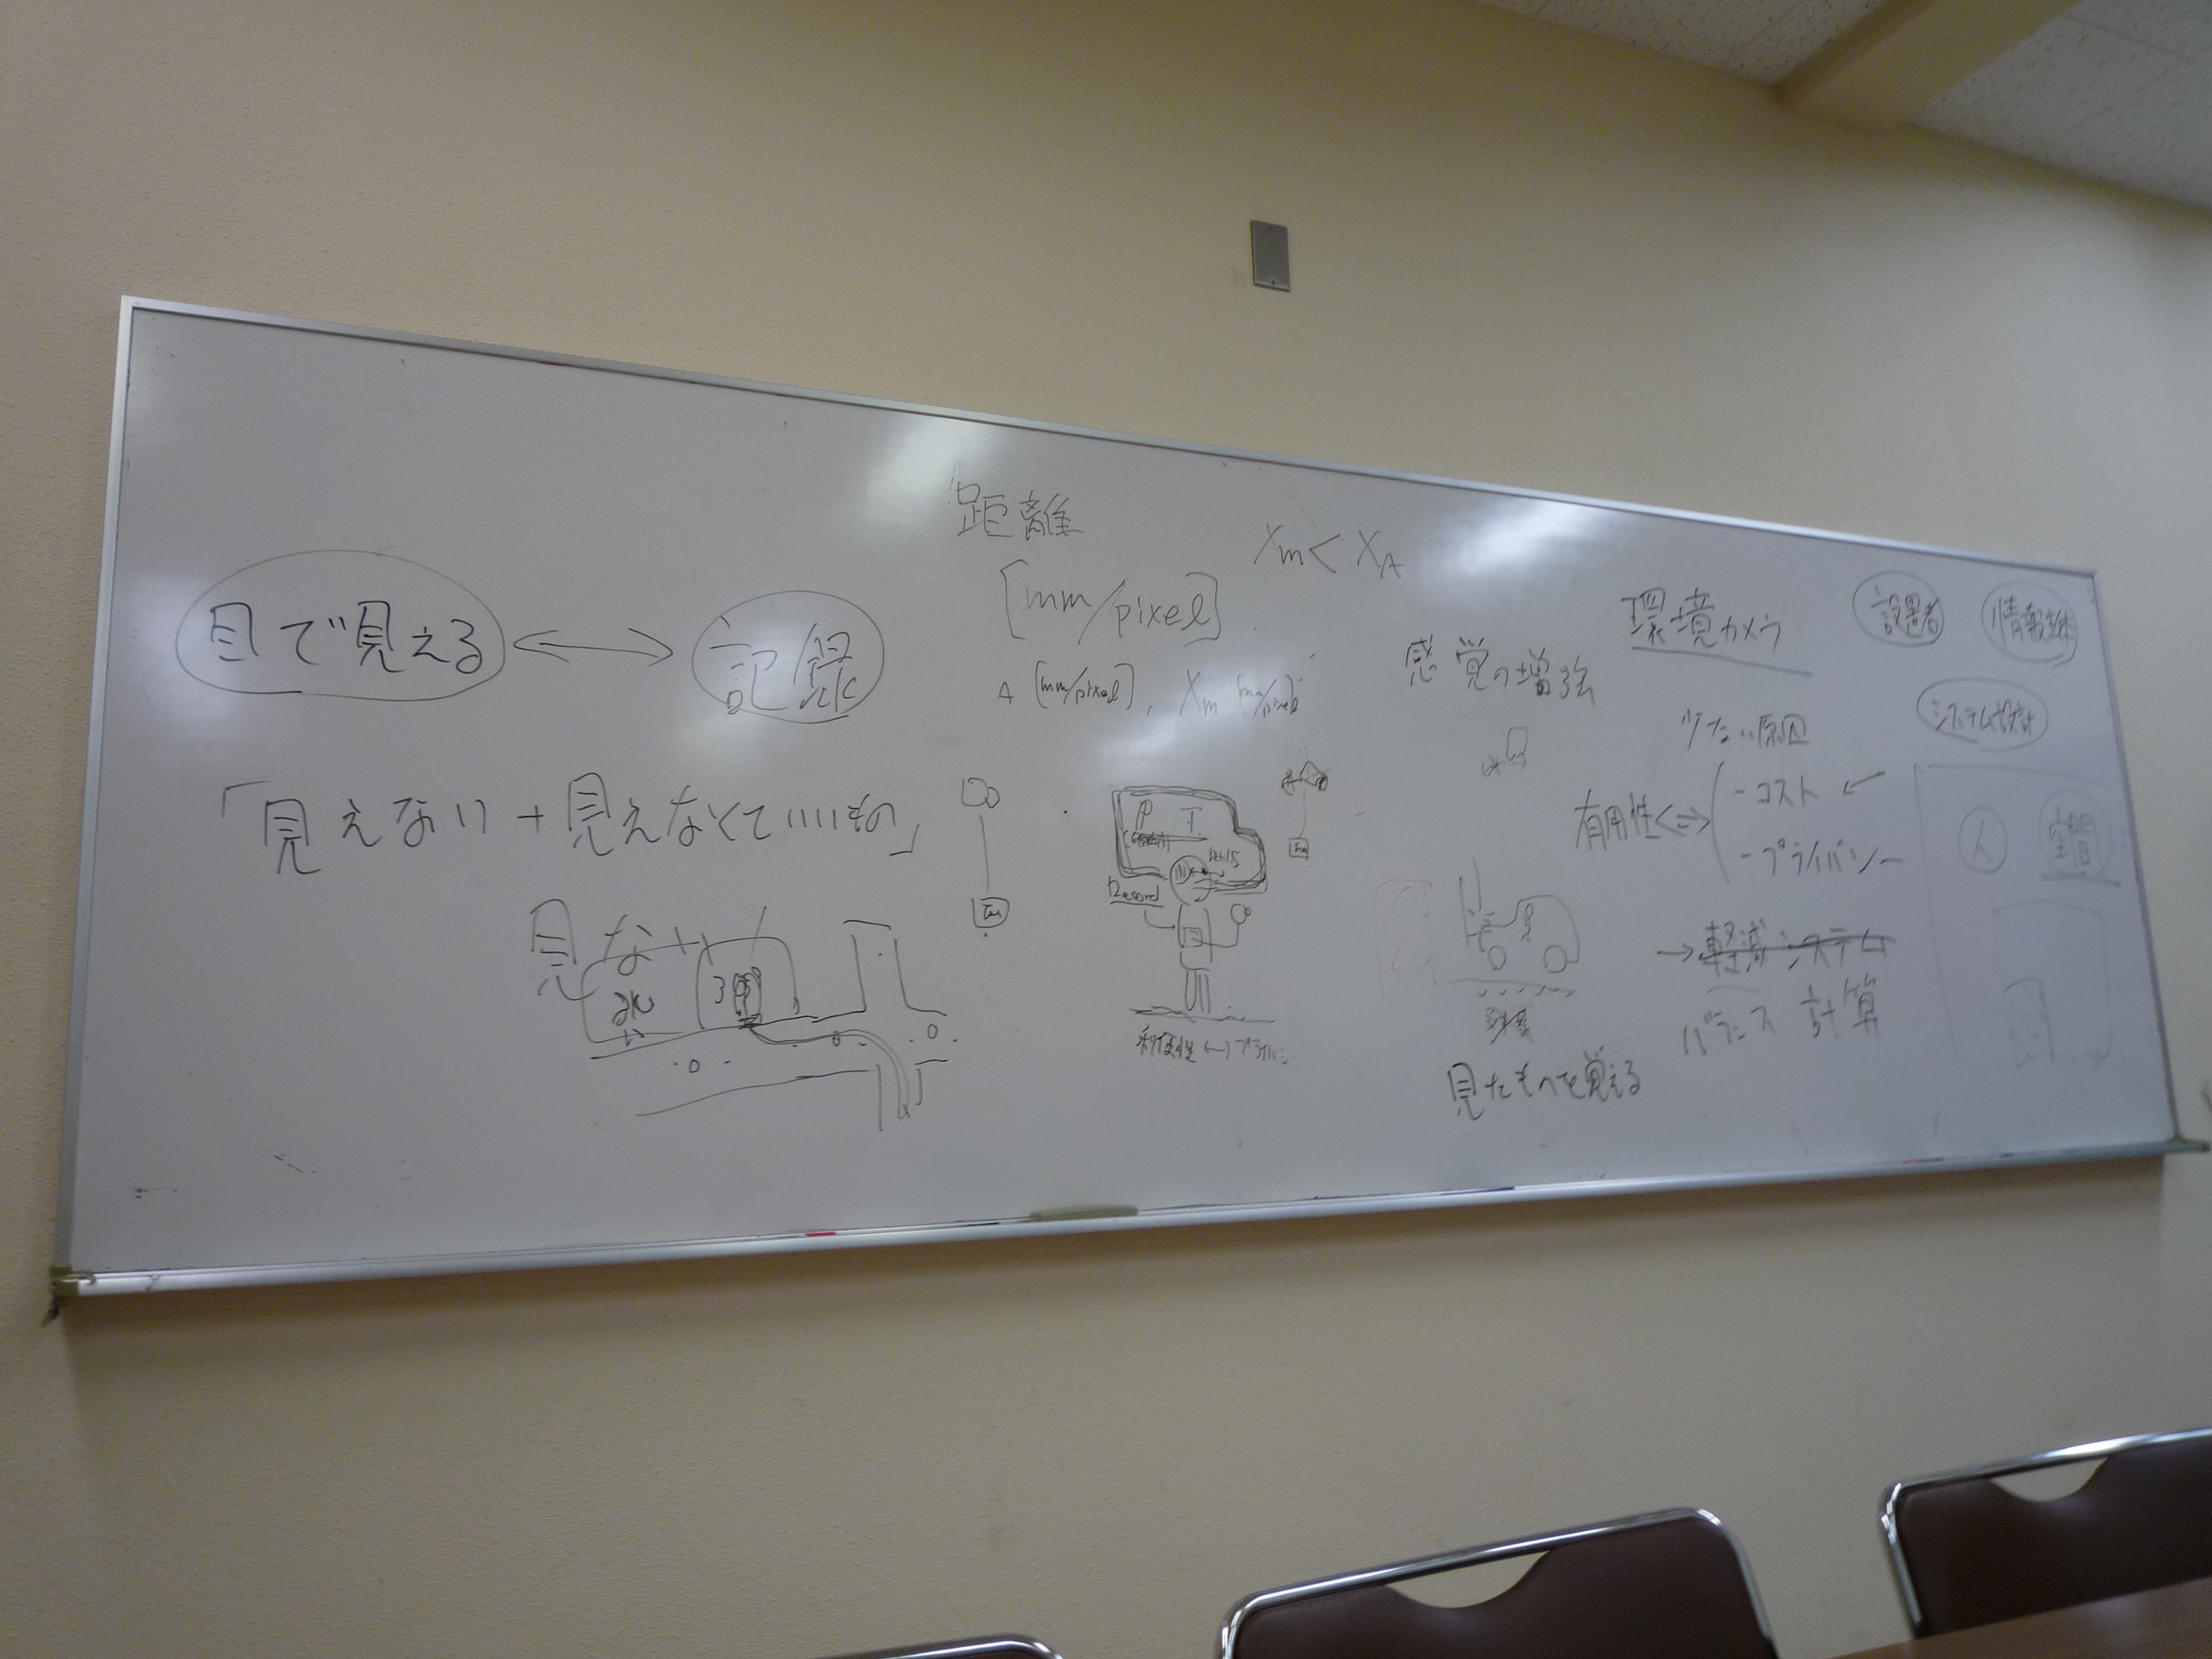 距離
[mm/pixel]
Xm < XA
A [mm/pixel], Xm [mm/pixel]
目で見える ⟷ 記録
「見えない + 見えなくていいもの」
見ない
P T
Record
利便性 ↔
感覚の増強
見たものを覚える
環境カメラ
少ない原因
有用性 ⇔
- コスト
- プライバシー
→ 軽減システム
バランス 計算
設置者
システム設計
人
空間